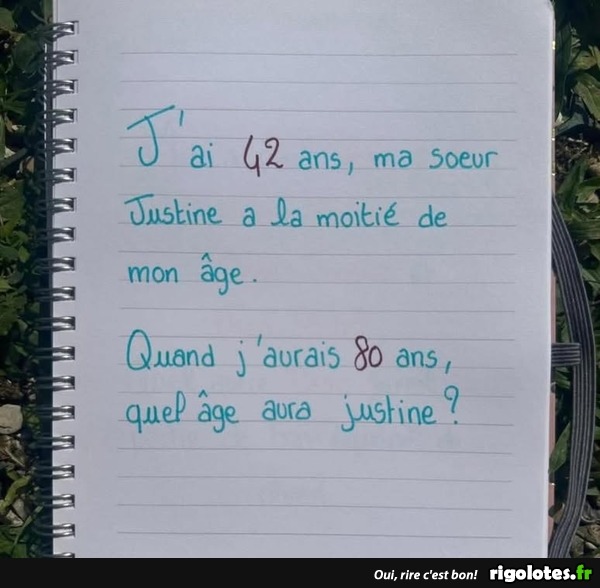 J'ai 42 ans, ma soeur
Justine a la moitié de
mon âge.
Quand j'aurais 80 ans,
quel âge aura justine?
Oui, rire c'est bon! rigolotes.fr